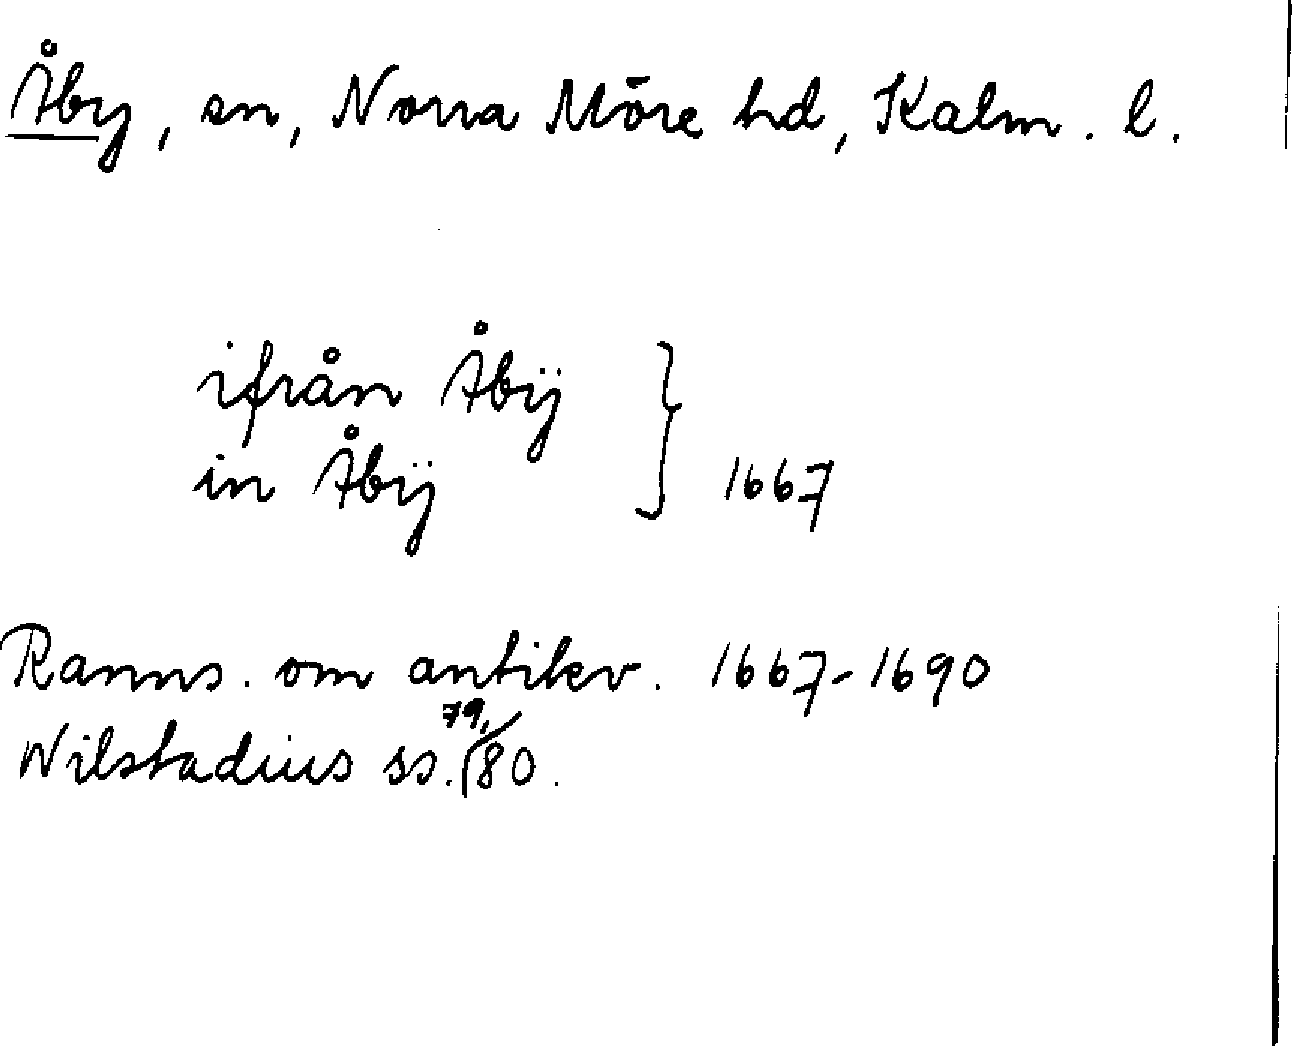 Åby, sn, Norra Möre hd, Kalm. l.
ifrån Åbÿ
in Åbÿ } 1667
Ranns. om antikv. 1667-1690
Wilstadius ss. 79, 80.